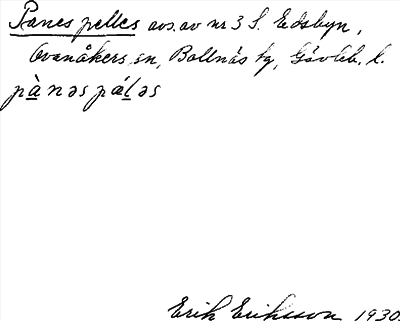 Panes pelles avs. av nr 3 S. Edsbyn,
Ovanåkers sn, Bollnäs tg, Gävleb. l.
pànəspáləs
Erik Eriksson 1930.